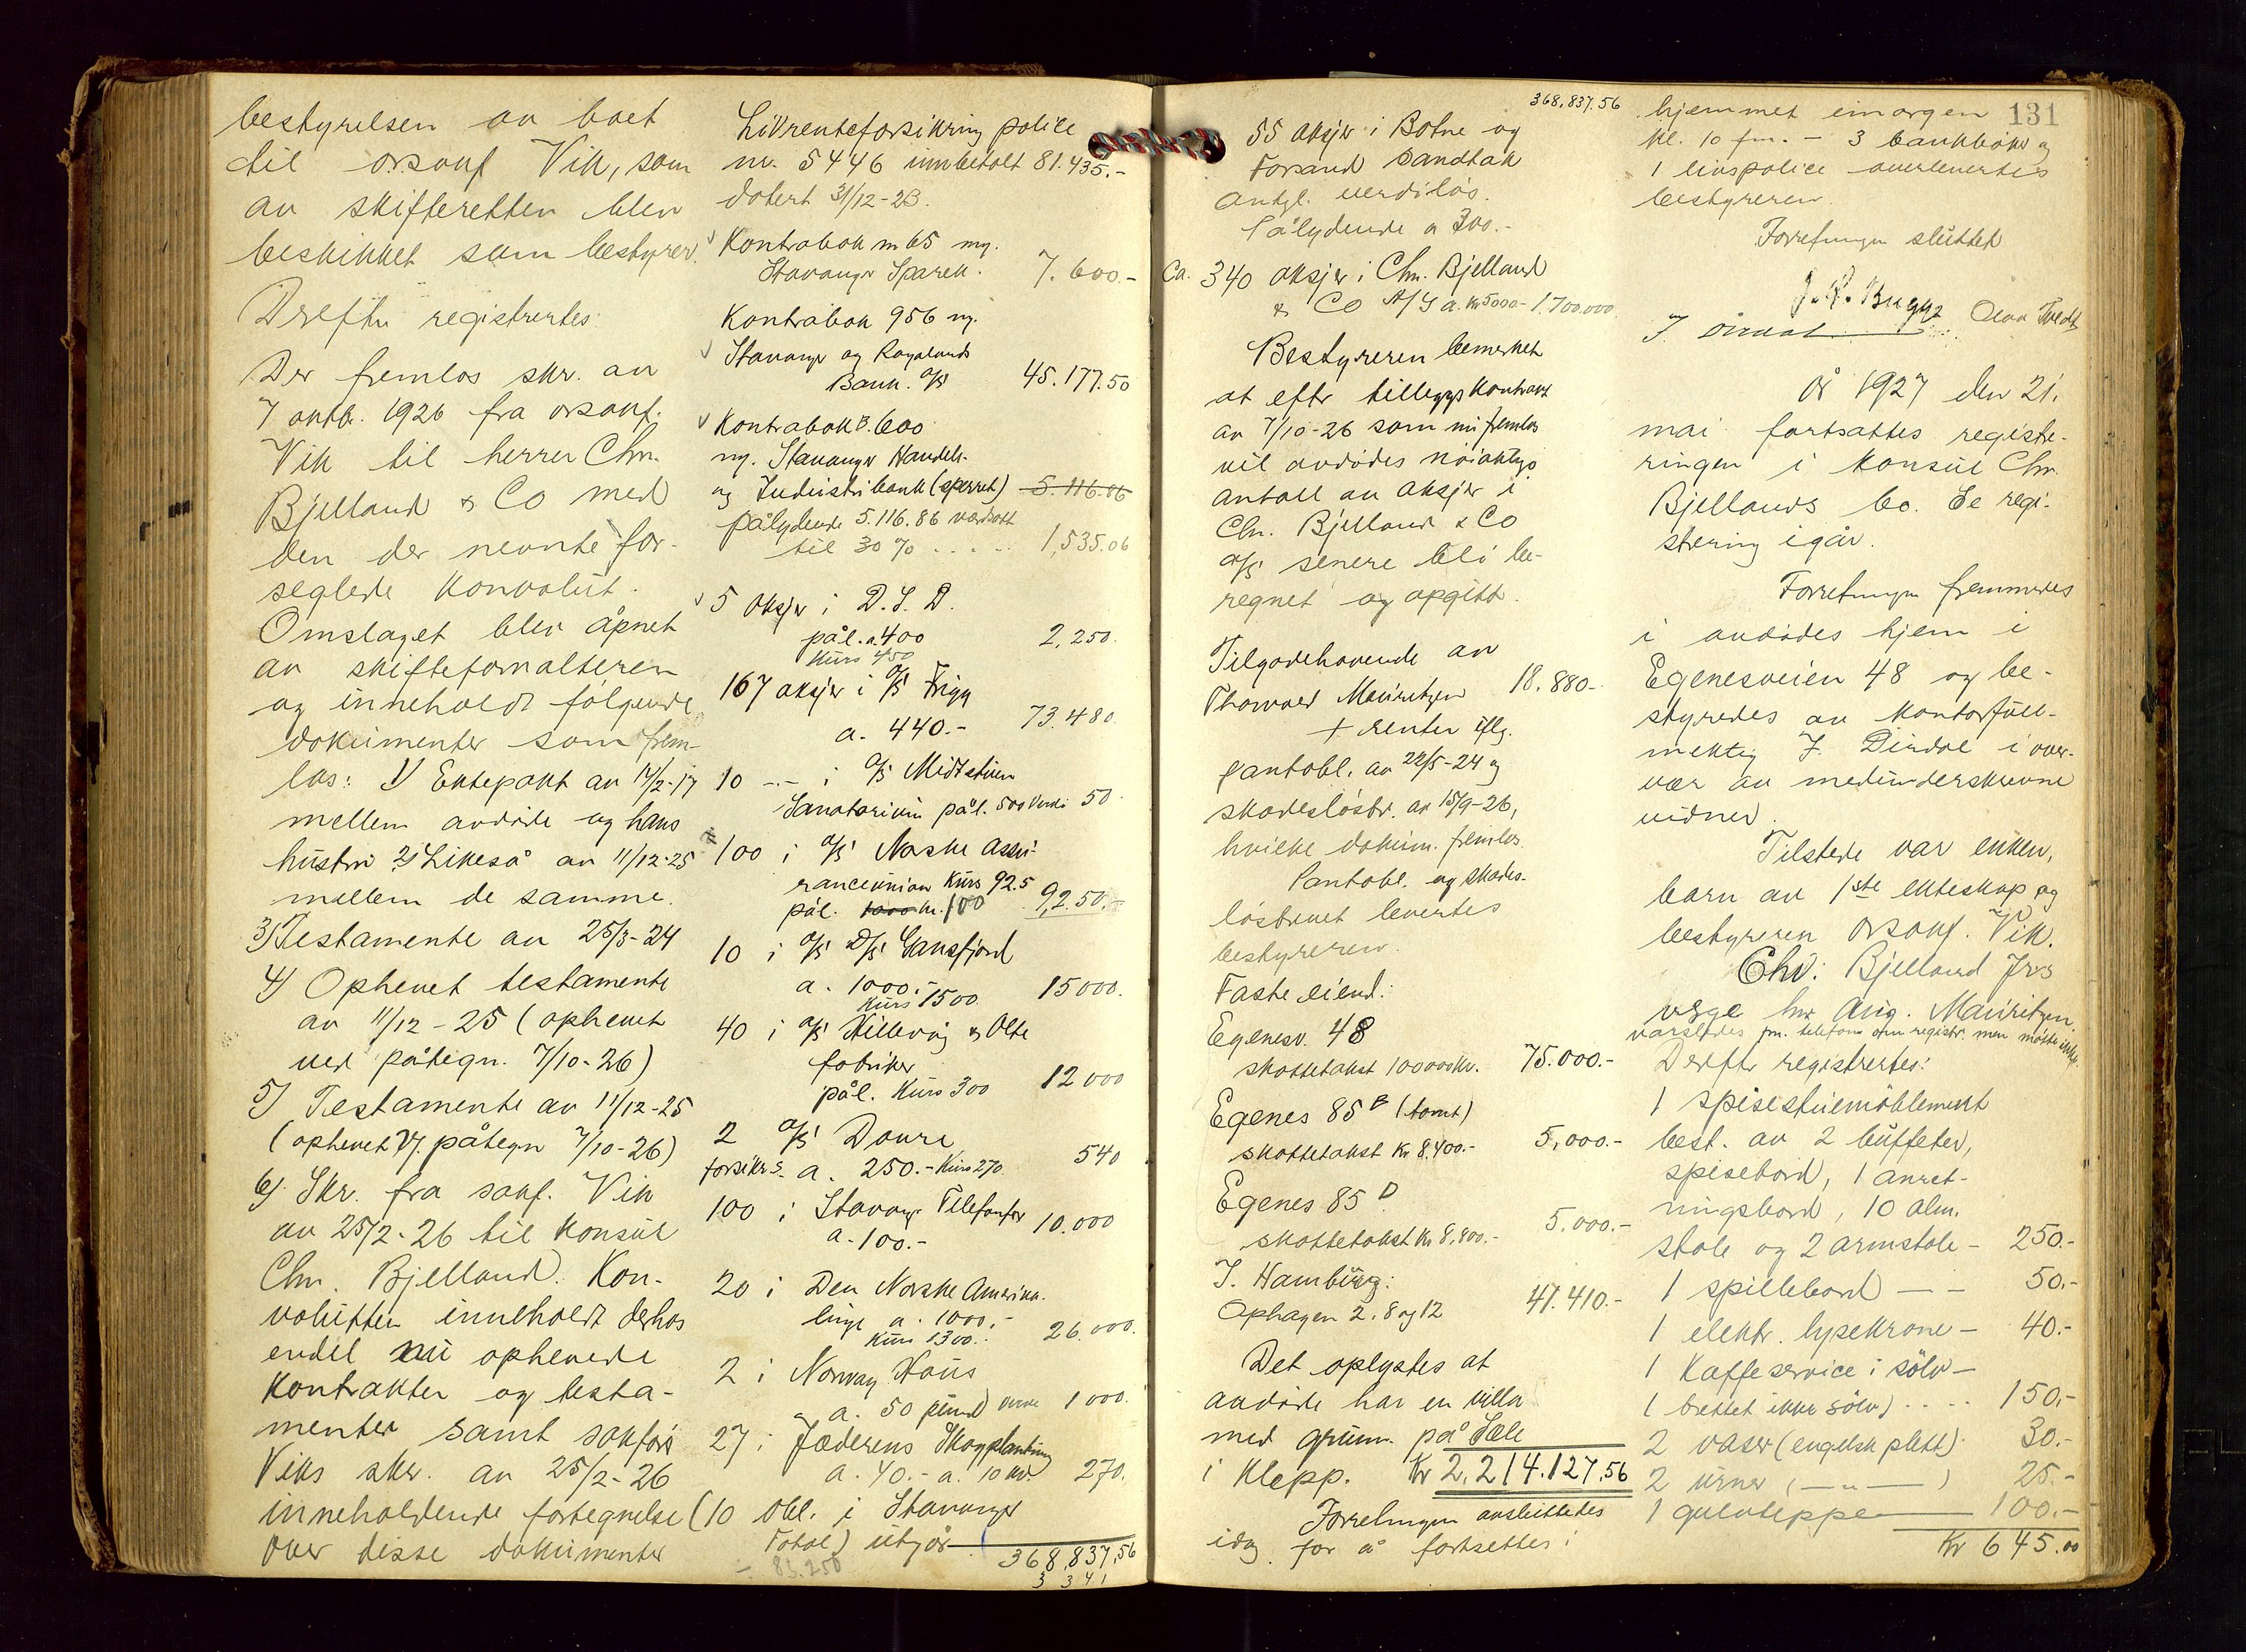 bestyrelsen av boet
til orsakf Vik, som
av skifteretten blev
beskikket som bestyrer.
Dreftr registrertes:
Der fremlos skr. av
7 oktb. 1926 fra orsakf.
Vik til herrer Chr.
Bjelland & Co med
den der nevnte for-
seglede konvolut.
Omslaget blev åpnet
av skifteforvalteren
og inneholdt følgende
dokumenter som frem-
las: 1) Ektepakt av 14/2-17
mellem avdøde og hans
hustru 2) Likeså av 11/12-25
mellem de samme.
3) Testamente av 25/3-24
4) Ophevet testamente
av 11/12-25 (ophevet
ved påtegn. 7/10-26)
5) Testamente av 11/12-25
(ophevet v. påtegn 7/10-26)
6) Skr. fra sakf. Vik
av 25/2-26 til konsul
Chr. Bjelland. Kon-
volutten inneholdt derhos
endel nu ophevede
kontrakter og testa-
menter samt sakførs
Viks skr. av 25/2-26
inneholdende fortegnelse
over disse dokumenter
Livrenteforsikring police
nr. 5446 innbetalt 81.435.-
datert 31/12-23.
Kontrabok nr 65 ny.
Stavanger Sparek. 7.600.-
Kontrabok 956 ny.
Stavanger og Rogalands
Bank. A/S 45.177.50
Kontrabok B.600
ny. Stavanger Handels-
og Industribank (sperret) 5.116.86
pålydende 5.116.86 værdsatt
til 30% ..... 1,535.06
5 aksjer i D.S.D.
pål. a 400 2,250.
Kurs 450
167 aksjer i A/S Frigg
a. 440.- 73.480
10 -- i A/S Midtstuen
Sanatorium pål. 500 Verdi 50.
100 i A/S Norske Assu-
ranceunion Kurs 92.5
pål. 1000 kr. 100 9,250.-
10 i A/S D/S Gansfjord
a. 1000.- 15000.
Kurs 1500.
40 i A/S Hillevåg & Olte
fabriker
pål. Kurs 300 12000
2 A/S Dovre
forsikr.s. a. 250.- Kurs 270. 540
100 i Stavang. Telefonfor
a. 100.- 10.000
20 i Den Norske Amerika.
linje a. 1000.-
Kurs 1300.- 26.000.
2 i Norway Haus
a. 50 pund 1000.
27 i Jæderens Skogplantning
a. 40.- a. 10 kr. 270.
(10 obl. i Stavanger
Total) utgjør 368,837,56
- 83.250 3 3 4.1
368,837.56
55 aksjer i Botne og
Forsand Sandtak
antgl. verdiløs.
Pålydende a 300.-
Ca. 340 aksjer i Chr. Bjelland
& Co A/S a. kr 5000.- 1.700.000
Bestyreren bemerket
at eftr tilleggskontrakt
av 7/10-26 som nu fremlos
vil avdødes nøiaktige
antall av aksjer i
Chr. Bjelland & Co
A/S senere bli be-
regnet og opgitt.
Tilgodehavende av
Thorvald Mauritzen 18.880.-
+ renter iflg.
pantobl. av 22/5-24 og
skadesløsbr. av 15/9-26,
hvilke dokum. fremlos.
Pantobl. og skades-
løsbrevet levertes
bestyreren.
Faste eiend.:
Egenesv. 48
skattetakst 100000 kr. 75.000.-
Egenes 85 B (tomt)
skattetakst kr 8.400.- 5,000.-
Egenes 85 D
skattetakst kr 8,800.- 5.000.-
I. Hamburg:
Ophagen 2.8 og 12 47.410.-
Det oplystes at
avdøde har en villa
med grunn på Sele
i Klepp. Kr 2.214.127,56
Forretningen avsluttedes
idag for å fortsettes i
131
hjemmet imorgen
kl. 10 fm. - 3 bankbøker og
1 livspolice overlevertes
bestyreren.
Forretningen sluttet
J. K. Bugge Olav Tvedt
J. Dirdal
År 1927 den 21.
mai fortsattes registre-
ringen i konsul Chr.
Bjellands bo. Se regi-
strering igår.
Forretningen fremmedes
i avdødes hjem i
Egenesveien 48 og be-
styredes av kontorfull-
mektig J. Dirdal i over-
vær av medunderskrevne
vidner.
Tilstede var enken,
barn av 1ste ekteskap og
bestyreren orsakf. Vik.
Chr. Bjelland Jrs
verge hr Aug. Mauritzen
varsledes pr. telefon om registr. men møtte ikke.
Dereftr registrertes:
1 spisestuemøblement
best. av 2 buffeter,
spisebord, 1 anret-
ningsbord, 10 alm.
stole og 2 armstole - 250.-
1 spillebord -- 50.-
1 elektr. lysekrone - 40.-
1 Kaffeservice i sølv -
(brettet ikke sølv) .... 150.-
2 vaser (engelsk plett) 30.-
2 urner (—"—) 25.-
1 gulvteppe 100.-
Kr 645.00